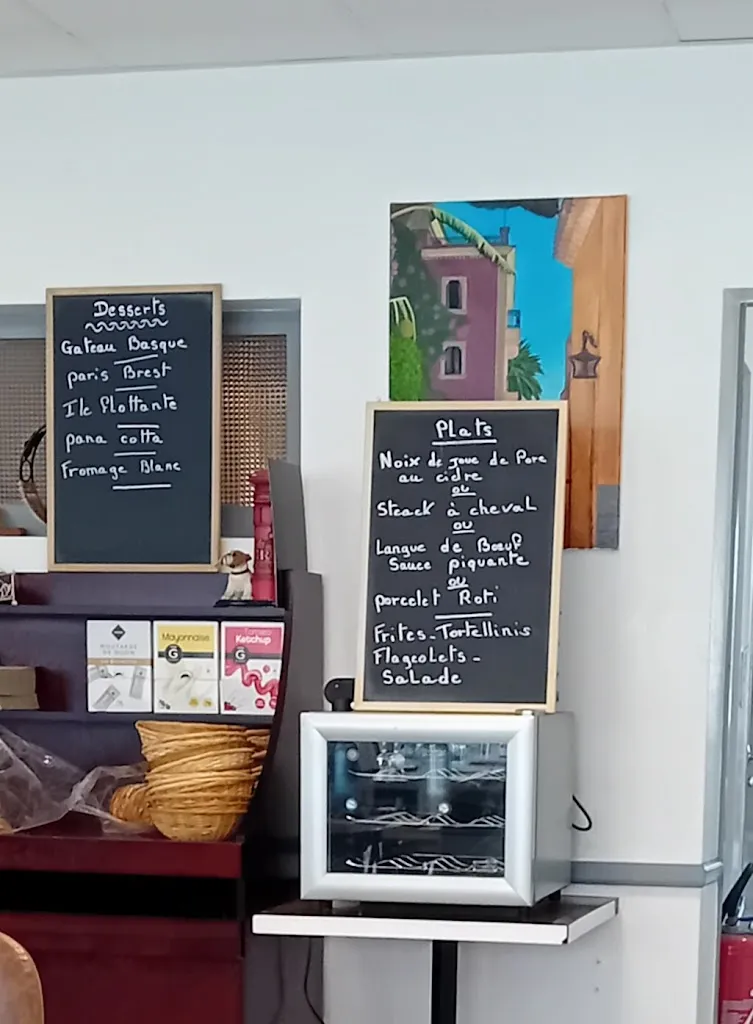 Desserts
Gateau Basque
paris Brest
Ile Flottante
pana cotta
Fromage Blanc
Plats
Noix de joue de Porc
au cidre
ou
Steack à cheval
ou
Langue de Bœuf
Sauce piquante
ou
porcelet Roti
Frites-Tortellinis
Flageolets-
Salade
MOUTARDE
DE DIJON
Mayonnaise
G
Tomato
Ketchup
G